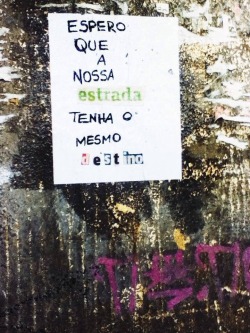 ESPERO
QUE
A
NOSSA
estrada
TENHA O
MESMO
destino